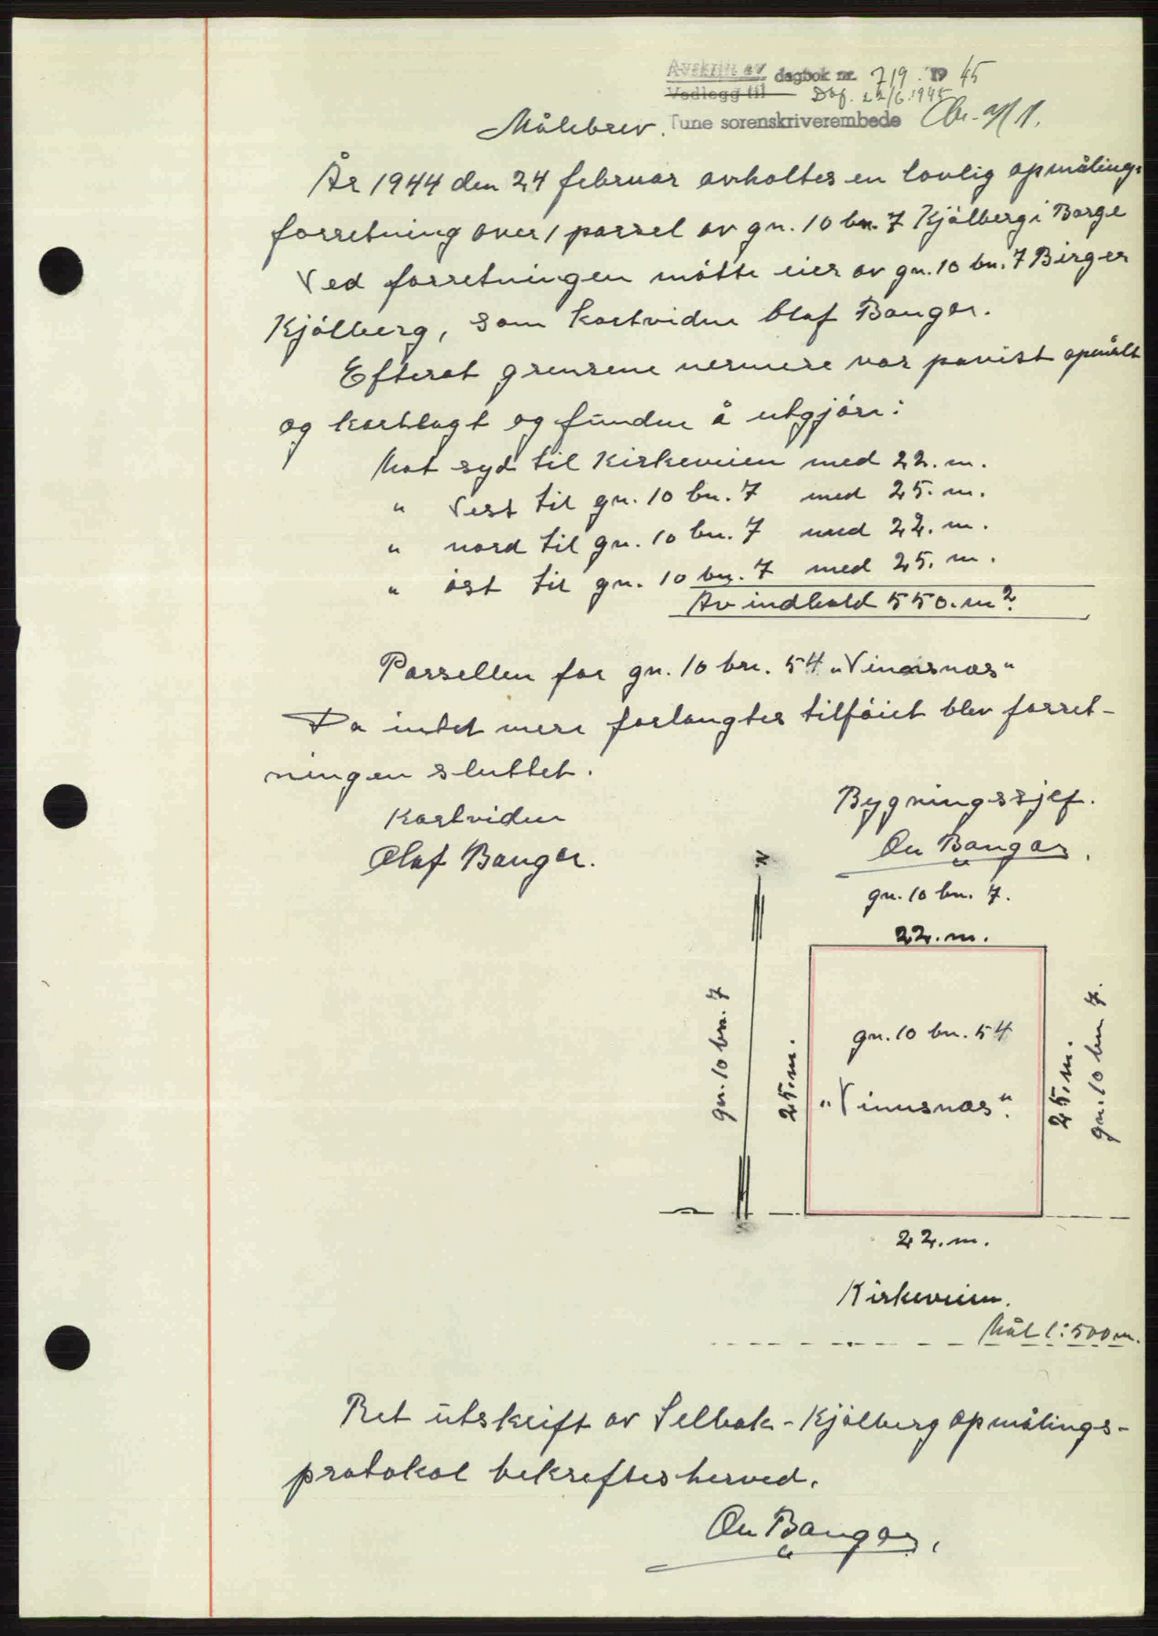 Avskrift av dagbok nr. 719 1945
Vedlegg til Daf. 22/6. 1945
Målebrev. Tune sorenskriverembede
År 1944 den 24 februar avholtes en lovlig opmålings-
forretning over 1 parsel av gn. 10 bn. 7 Kjølberg i Borge
Ved forretningen møtte eier av gn. 10 bn. 7 Birger
Kjølberg, som kartviden Olaf Bangar.
Efterat grensene nermere var pavist opmålt
og kartlagt og funden å utgjøre:
Mot syd til Kirkeveien med 22. m.
" Vest til gn. 10 bn. 7 med 25. m.
" nord til gn. 10 bn. 7 med 22. m.
" øst til gn. 10 bn. 7 med 25. m.
Av indhold 550. m².
Parsellen får gn. 10 bn. 54 „Vinusnæs“
Da intet mere forlangtes tilføiet blev forret-
ningen sluttet.
Kartviden
Olaf Bangar.
Bygningssjef.
On Bangar.
N
gn. 10 bn. 7.
22. m.
gn. 10 bn. 7
25. m.
gn. 10 bn. 54
„Vinusnæs“.
25. m.
gn. 10 bn 7.
22. m.
Kirkeveien.
Mål 1:500 m.
Ret utskrift av Selbak - Kjølberg opmålings-
protokol bekreftes herved.
On Bangar.